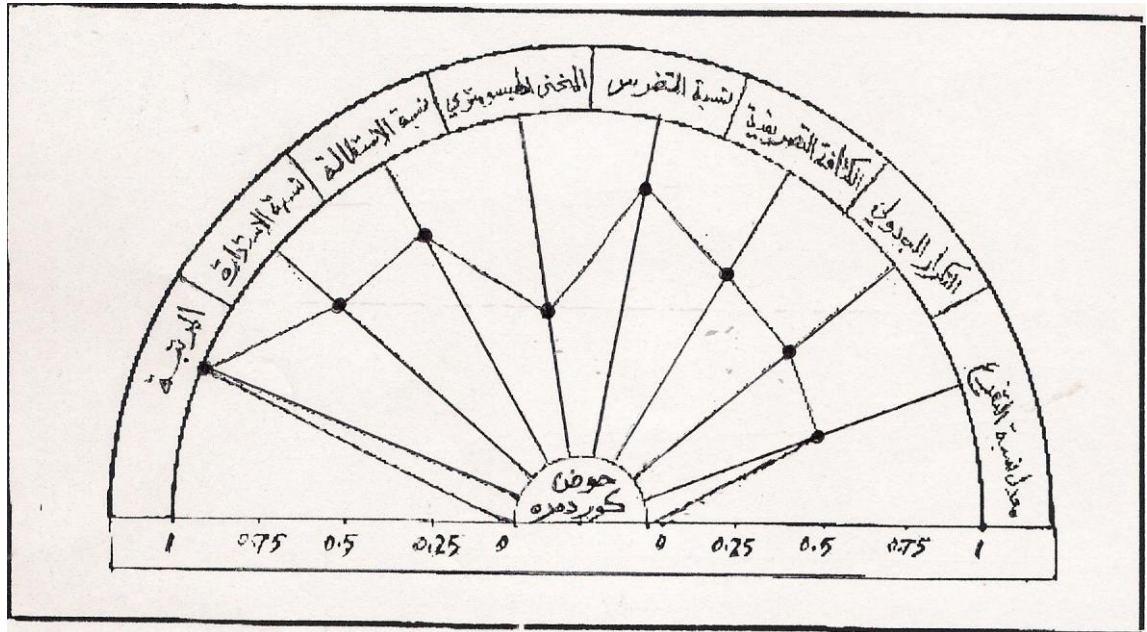 المرتبة
نسبة الاستدارة
نسبة الاستطالة
المنحنى الهبسومتري
نسبة التضرس
الكثافة التصريفية
التكرار الجدولي
معدل نسبة التفرع
حوض
كوردمره
1 0.75 0.5 0.25 0 0 0.25 0.5 0.75 1